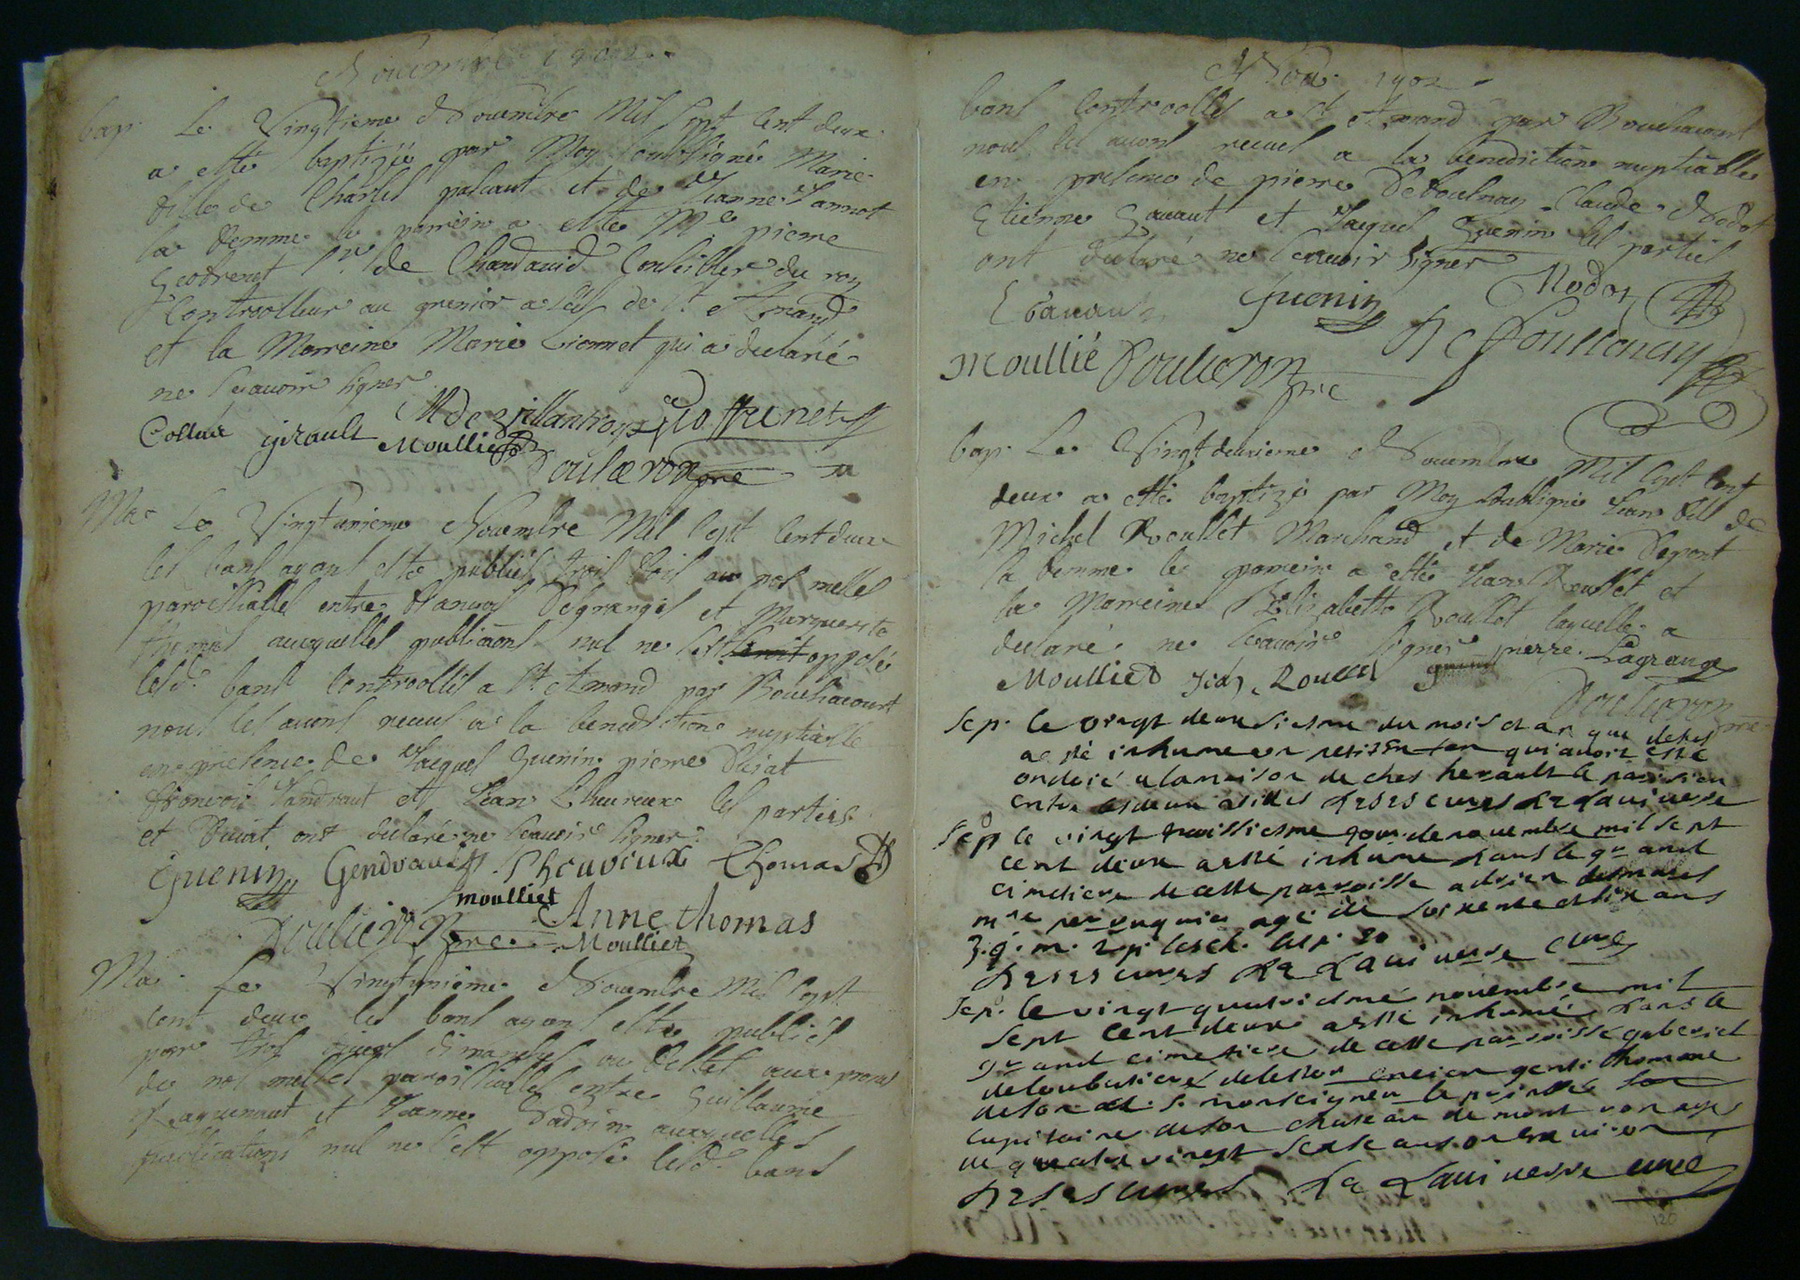 Nouembre 1702
bap. Le Vingtieme Nouembre Mil sept cent deux
a esté baptizée par Moy soubsigné Marie
fille de Charles pascaut et de Jeanne Jannot
sa femme le parrein a esté Me pierre
Geofrenet Sr. de Chandauid Conseiller du roy
Controolleur au grenier a sel de St. Amand
et la Marreine Marie Lionnet qui a declaré
ne scauoir signer
M de Villantroys Geoffrenet
Collas girault Moulliet
Douleron pre
Ma. Le Vingtunieme Nouembre Mil sept cent deux
les bans ayans esté publiés trois fois aux nos messes
paroissialles entre francois Degranges et Marguerite
thomas ausquelles publications nul ne s'est opposé
lesd. bans Controollés a St. Amand par Bouchacourt
nous les auons receus a la benediction nuptialle
en presence de Jacques Guenin pierre Duiat
francois Jandraut et Jean Lheureux les parties
et Duiat ont declaré ne scauoir signer
Guenin Gendraux Lheureux Thomas
moulliet
Anne thomas
Douleron pre Moulliet
Ma. Le Vingtunieme Nouembre Mil sept
cent deux les bans ayans esté publiés
par trois jours dimanches ou festes aux prosnes
de nos messes paroissialles entre Guillaume
et Jeanne ausquelles
publications nul ne s'est opposé lesd. bans
Nou. 1702
bans Controollés a St. Amand par Bouchacourt
nous les auons receus a la benediction nuptialle
en presence de pierre Deboulnay Claude Nodot
Etienne Gauaut et Jacques Guenin les parties
ont declaré ne scauoir signer
Guenin Nodot
Moullié Douleron pre
bap. Le Vingt deuxieme Nouembre Mil sept cent
deux a esté baptizé par Moy soubsigné Jean fils de
Michel Roullet Marchand et de Marie Depont
sa femme le parrein a esté Jean Roullet et
la Marreine Elizabeth Roullet laquelle a
declaré ne scauoir signer pierre Lagrange
Moulliet Jean Roullet
Douleron pre
Sep. le vingt deuxsiesme du mois et an que desus
a esté inhume un petit enfan qui auoit esté
ondoié a la maison de ches herault le parisien
Desrescures De Lauiuesse
Sep le vingt troissiesme jour de nouembre mil sept
cent deux a esté inhumé dans le grand
cimetiere de cette parroisse adrien desmares
mre peruquier agé de soixente et dix ans
Desrescures De Lauiuesse curé
Sep. le vingt quatriesme nouembre mil
sept cent deux a esté inhumé dans le
grand cimetiere de cette parroisse gaberiel
ancien gentilhomme
de S. monseigneur le prince
capitaine de son chateau de mont ron agé
de quatre vingt seise ans ou enuiron
Desrescures De Lauiuesse curé
120